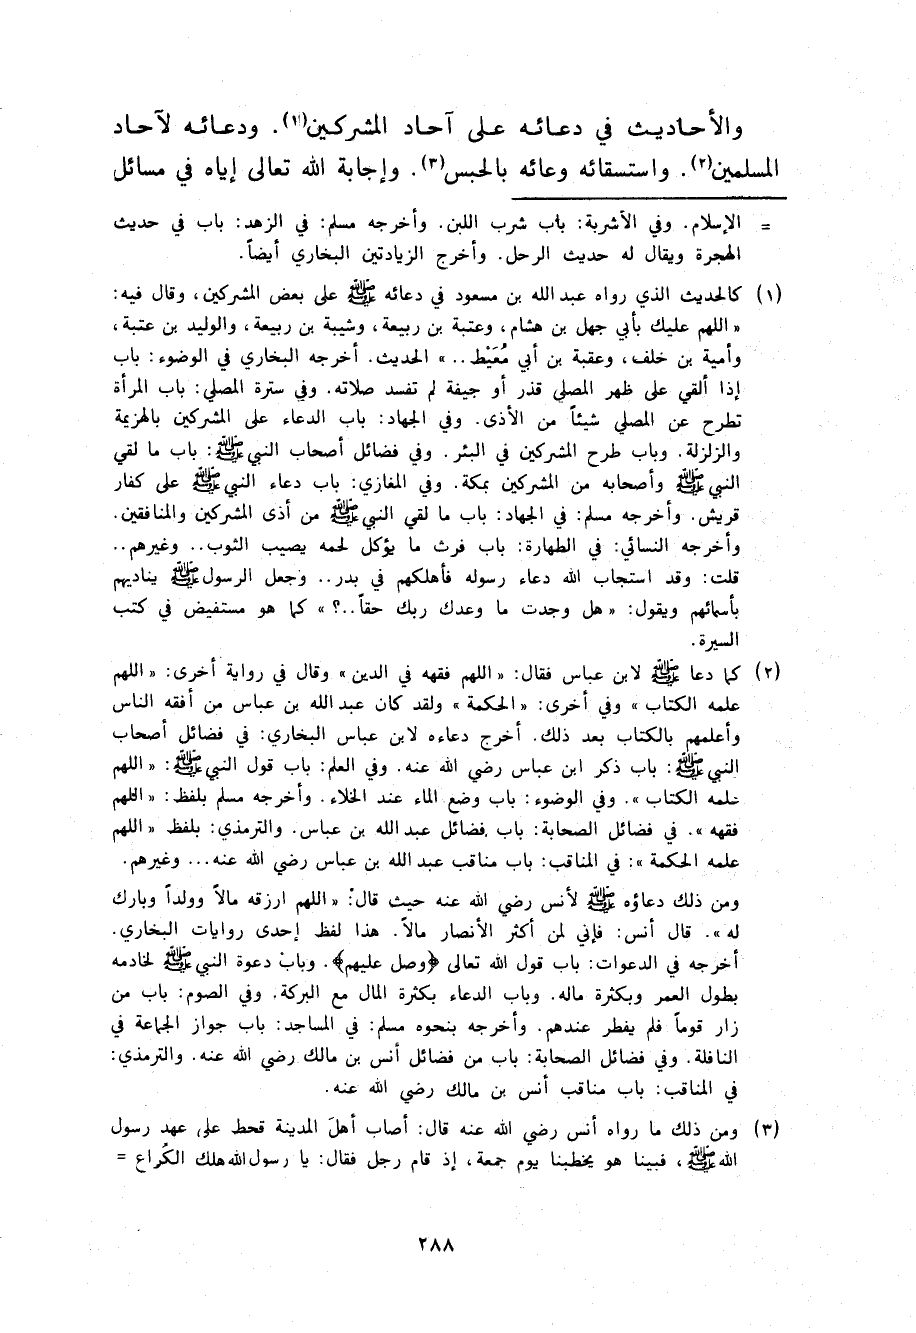 والأحاديث في دعائه على آحاد المشركين(١). ودعائه لآحاد
المسلمين(٢). واستسقائه وعائه بالحبس(٣). وإجابة الله تعالى إياه في مسائل
= الإسلام. وفي الأشربة: باب شرب اللبن. وأخرجه مسلم: في الزهد: باب في حديث
الهجرة ويقال له حديث الرحل. وأخرج الزيادتين البخاري أيضاً.
(١) كالحديث الذي رواه عبد الله بن مسعود في دعائه ﷺ على بعض المشركين، وقال فيه:
« اللهم عليك بأبي جهل بن هشام، وعتبة بن ربيعة، وشيبة بن ربيعة، والوليد بن عتبة،
وأمية بن خلف، وعقبة بن أبي مُعَيْط.. » الحديث. أخرجه البخاري في الوضوء: باب
إذا ألقي على ظهر المصلي قذر أو جيفة لم تفسد صلاته. وفي سترة المصلي: باب المرأة
تطرح عن المصلي شيئاً من الأذى. وفي الجهاد: باب الدعاء على المشركين بالهزيمة
والزلزلة. وباب طرح المشركين في البئر. وفي فضائل أصحاب النبي ﷺ: باب ما لقي
النبي ﷺ وأصحابه من المشركين بمكة. وفي المغازي: باب دعاء النبي ﷺ على كفار
قريش. وأخرجه مسلم: في الجهاد: باب ما لقي النبي ﷺ من أذى المشركين والمنافقين.
وأخرجه النسائي: في الطهارة: باب فرث ما يؤكل لحمه يصيب الثوب.. وغيرهم..
قلت: وقد استجاب الله دعاء رسوله فأهلكهم في بدر.. وجعل الرسول ﷺ يناديهم
بأسمائهم ويقول: « هل وجدت ما وعدك ربك حقاً..؟ » كما هو مستفيض في كتب
السيرة.
(٢) كما دعا ﷺ لابن عباس فقال: « اللهم فقهه في الدين » وقال في رواية أخرى: « اللهم
علمه الكتاب » وفي أخرى: « الحكمة » ولقد كان عبد الله بن عباس من أفقه الناس
وأعلمهم بالكتاب بعد ذلك. أخرج دعاءه لابن عباس البخاري: في فضائل أصحاب
النبي ﷺ: باب ذكر ابن عباس رضي الله عنه. وفي العلم: باب قول النبي ﷺ: « اللهم
علمه الكتاب ». وفي الوضوء: باب وضع الماء عند الخلاء. وأخرجه مسلم بلفظ: « اللهم
فقهه ». في فضائل الصحابة: باب فضائل عبد الله بن عباس. والترمذي: بلفظ « اللهم
علمه الحكمة »: في المناقب: باب مناقب عبد الله بن عباس رضي الله عنه... وغيرهم.
ومن ذلك دعاؤه ﷺ لأنس رضي الله عنه حيث قال: « اللهم ارزقه مالاً وولداً وبارك
له ». قال أنس: فإني لمن أكثر الأنصار مالاً. هذا لفظ إحدى روايات البخاري.
أخرجه في الدعوات: باب قول الله تعالى ﴿وصل عليهم﴾. وباب دعوة النبي ﷺ لخادمه
بطول العمر وبكثرة ماله. وباب الدعاء بكثرة المال مع البركة. وفي الصوم: باب من
زار قوماً فلم يفطر عندهم. وأخرجه بنحوه مسلم: في المساجد: باب جواز الجماعة في
النافلة. وفي فضائل الصحابة: باب من فضائل أنس بن مالك رضي الله عنه. والترمذي:
في المناقب: باب مناقب أنس بن مالك رضي الله عنه.
(٣) ومن ذلك ما رواه أنس رضي الله عنه قال: أصاب أهلَ المدينة قحط على عهد رسول
الله ﷺ، فبينا هو يخطبنا يوم جمعة، إذ قام رجل فقال: يا رسول الله هلك الكُراع =
٢٨٨